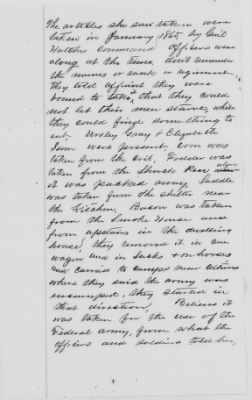 The articles she saw taken were
taken in January 1865 by Genl
Hatches command Officers were
along at the time, don't remember
the names or rank or regiment.
They told affiant they were
bound to take, that they could
not let their men starve, while
they could find something to
eat. Wesley Gray & Elizabeth
were present. Corn was
taken from the crib. Fodder was
taken from the Shuck Pen
it was packed away, Saddle
was taken from the shelter near
the Kitchen, Bacon was taken
from the Smoke House and
from upstairs in the dwelling
house, they removed it in one
wagon and in Sacks & on horses
and carried to camps near
where they said the army was
encamped. they started in
that direction, Believes it
was taken for the use of the
Federal army, from what the
officers and soldiers told her,